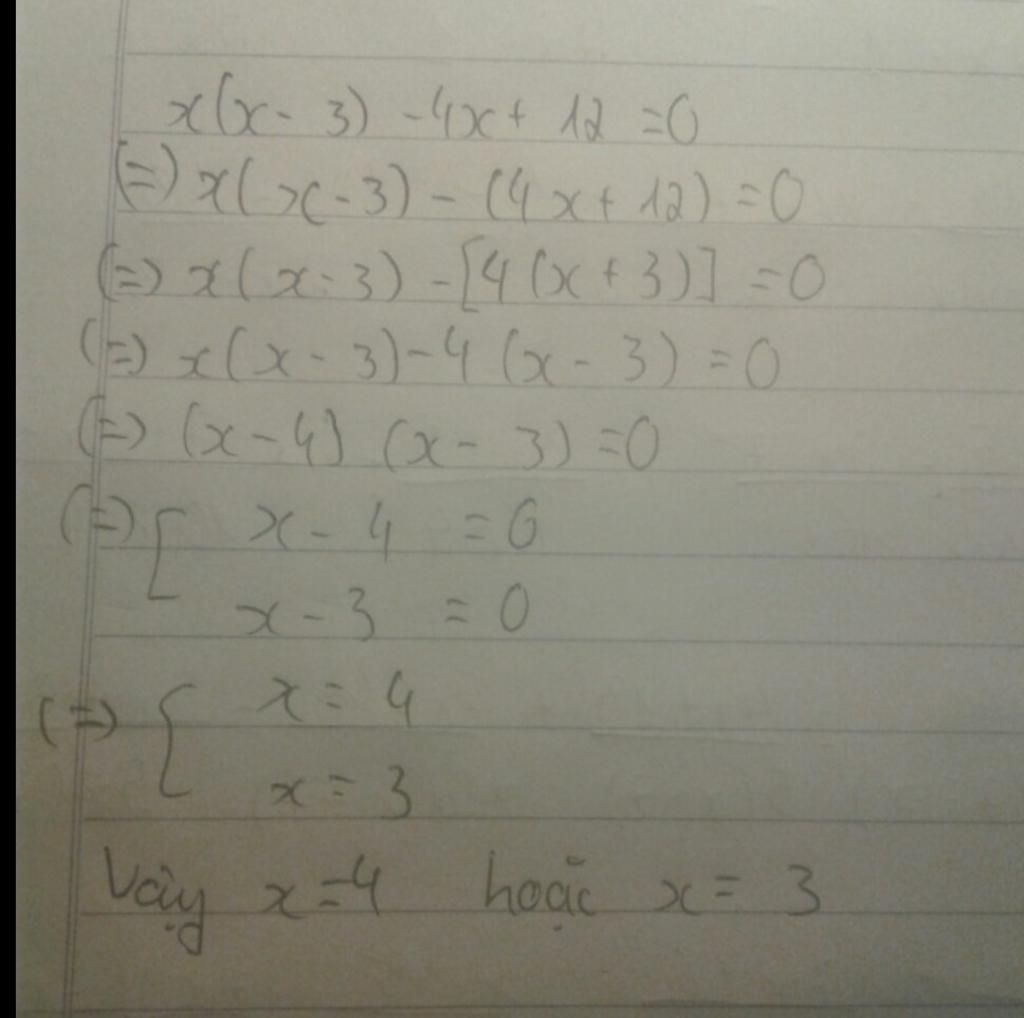 x(x - 3) - 4x + 12 = 0
(=) x(x - 3) - (4x + 12) = 0
(=) x(x - 3) - [4(x + 3)] = 0
(=) x(x - 3) - 4(x - 3) = 0
(=) (x - 4) (x - 3) = 0
(=) [ x - 4 = 0
x - 3 = 0
(=) { x = 4
x = 3
Vậy x = 4 hoặc x = 3